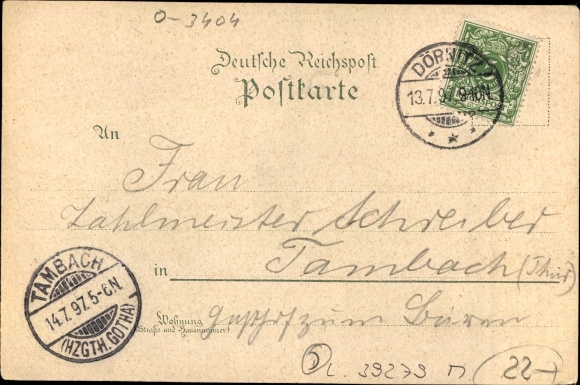 O-3404
Deutsche Reichspost
Postkarte
13.7.97. 9-10N.
An
Frau
Zahlmeister Schreiber
in Tambach (Thür)
TAMBACH
14.7.97. 5-6N.
(HZGTH. GOTHA)
Wohnung
(Straße und Hausnummer)
Gasthof zum Bären
L. 39279
22-